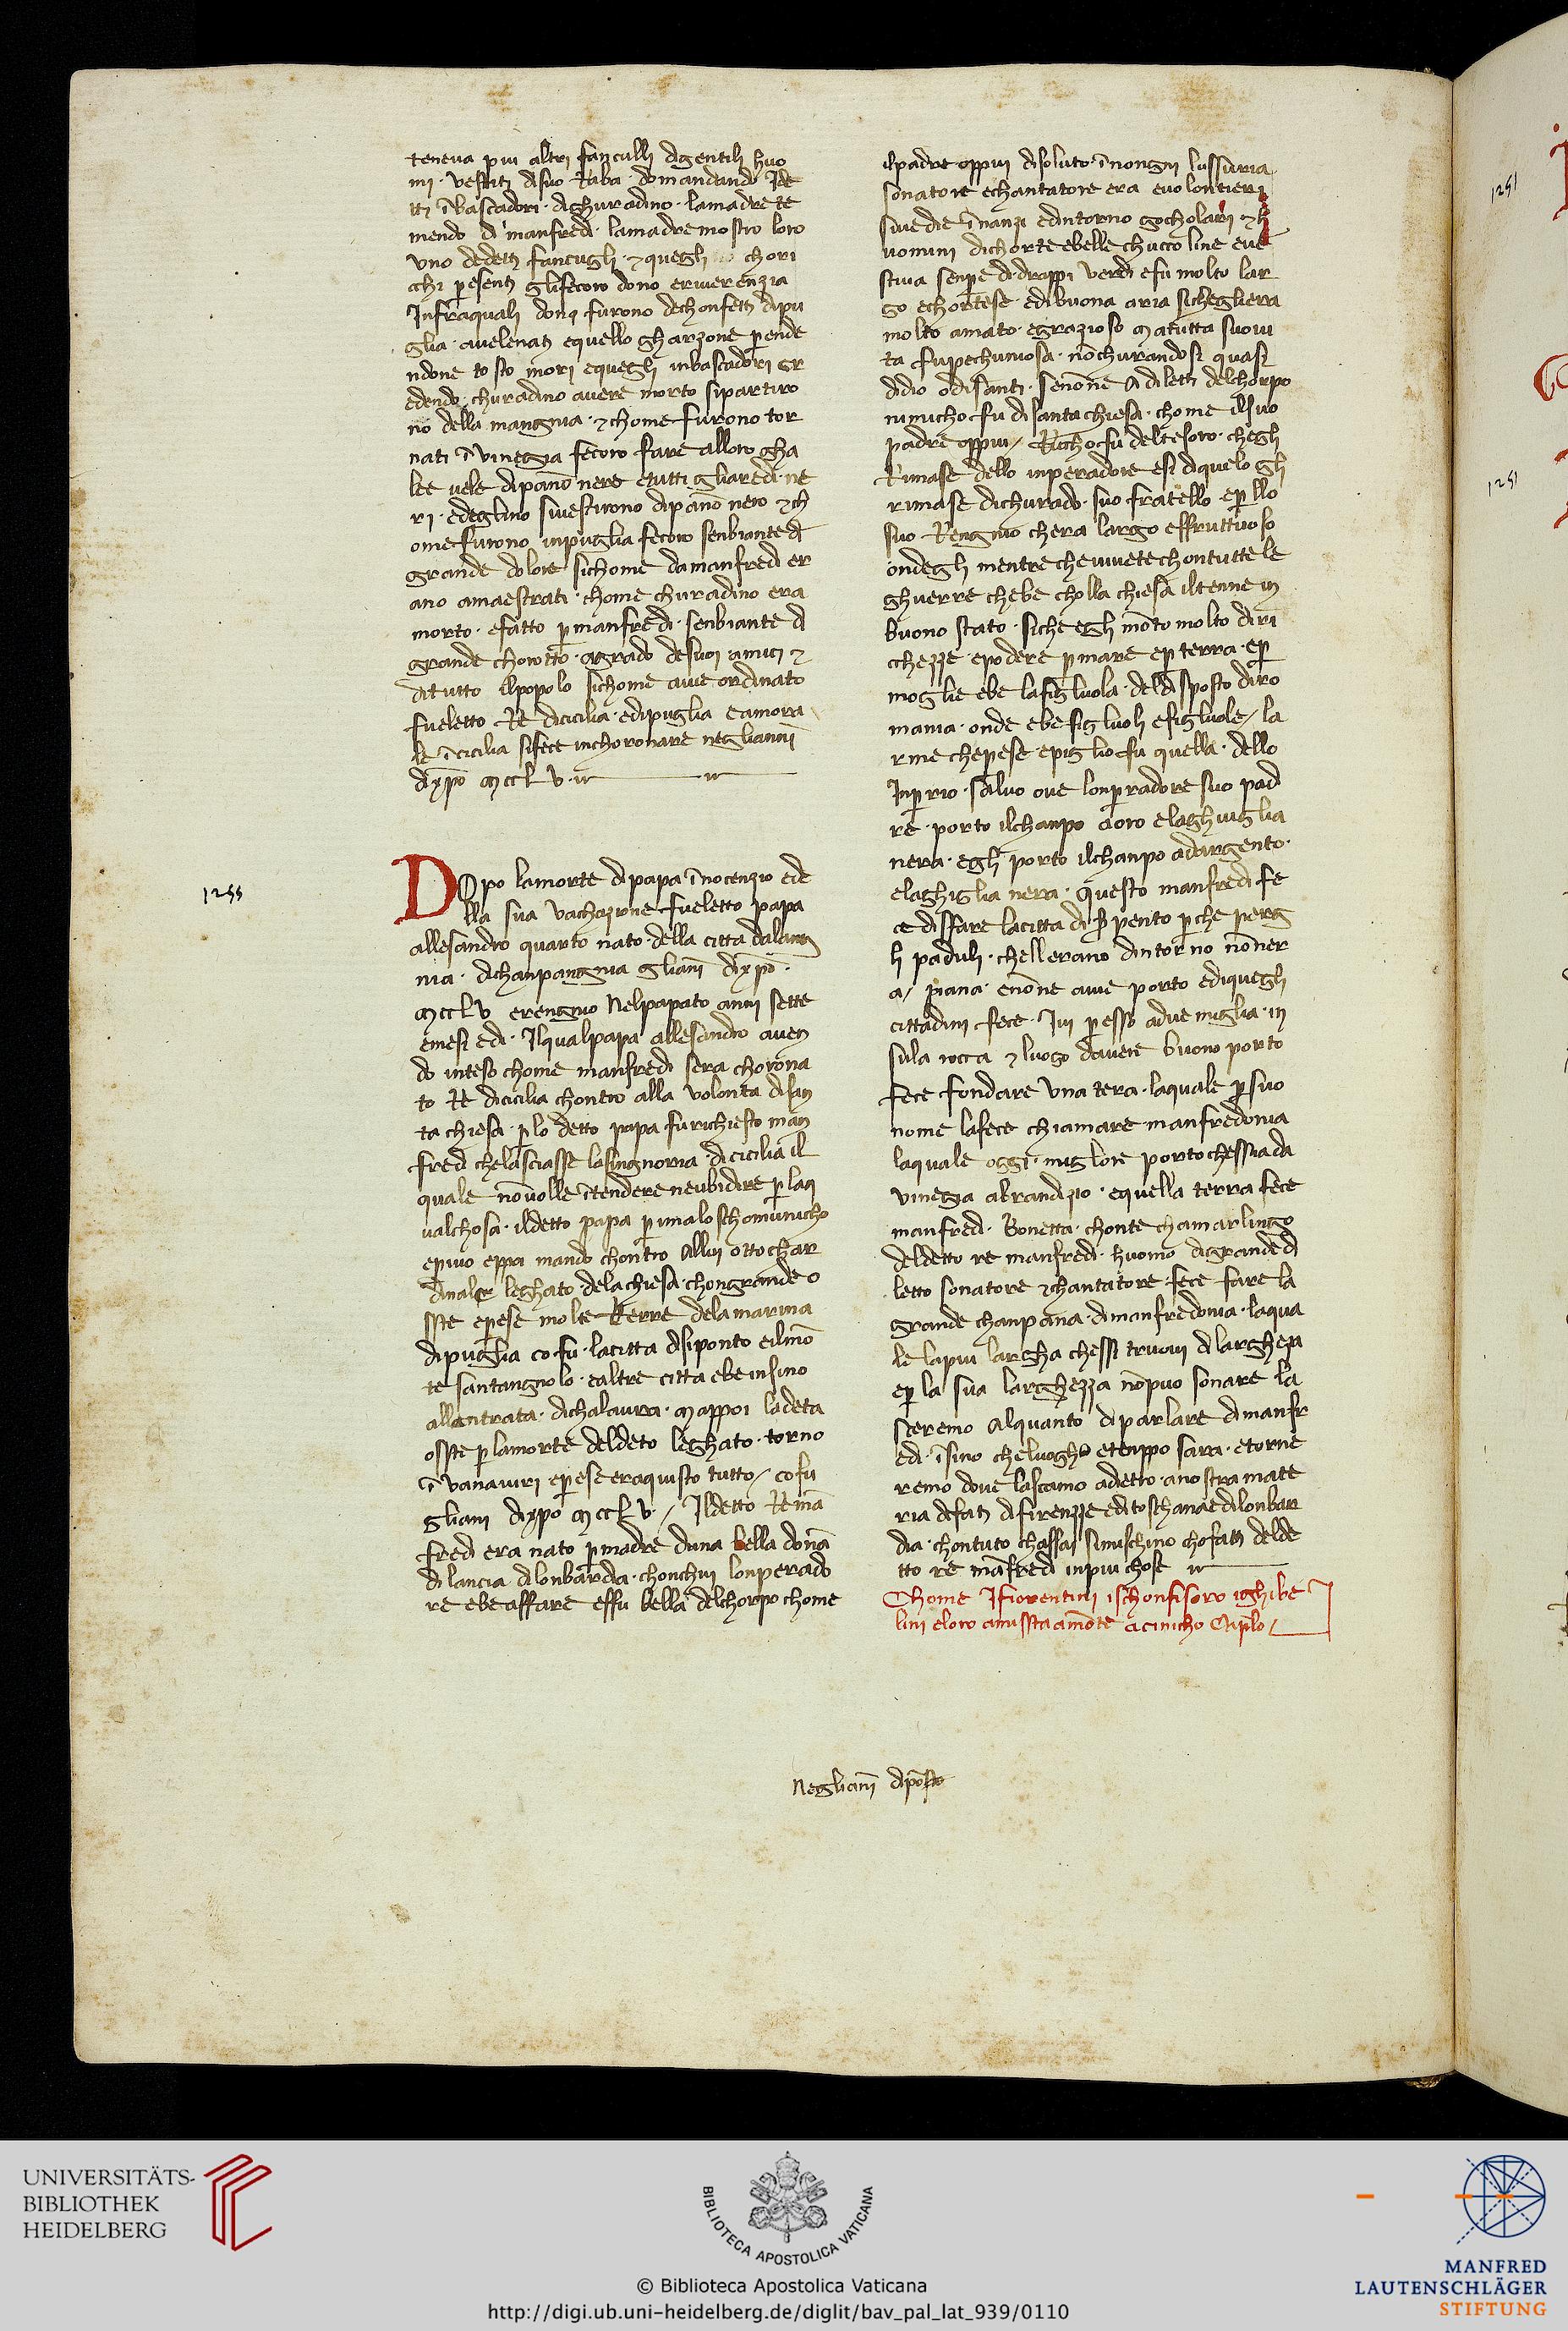 teneua piu altri fanculli dgentili huo
mi · vestiti disuo Raba · domandando Ide
tti ībascadori · dighuradino · lamadre te
mendo di manfredi · lamadre mostro loro
uno dedetti fancugli · ⁊ quegli chori
cchi p̱esenti glifecoro dono eriuerenzia
Infraquali doni furono dechonfetti dipu
glia · auelenati equello gharzone p̱ende
ndone tosto mori equegli inbascadori cr
edendo · churadino auere morto sipartiro
no della mangnia · ⁊chome furono tor
nati ī vinegia fecoro fare alloro gha
lee uele dipānō nere etutti gliaredi ne
ri · edeglino siuestirono dipānō nero ⁊ch
ome furono inpuglia fecoro senbiante di
grande dolore sichome damanfredi er
ano amaestrati · chome churadino era
morto · efatto p̱ manfredi · senbiante di
grande chorotto · agrado desuoi amici ⁊
ditutto ilpopolo sichome auie ordinato
fueletto Re dicicilia · edipuglia eamora
le īcicilia sifece inchoronare neglianni
dixp̄o mccLv
1255
Dopo lamorte dipapa īnocenzio ede
lla sua vachazione fueletto papa
allesandro quarto nato · della citta dalann
nia · dichanpangnia gliani dixp̄o ·
mccLv erengnio Nelpapato anni sette
emesi edi · Ilqualpapa allesandro auen
do inteso chome manfredi sera chorona
to Re dicicilia chontro alla volonta disan
ta chiesa · p̱ lo detto papa furichiesto man
fredi chelasciasse lasingnoria · dicicilia il
quale nōuolle ītendere neubidire p̱ laq
ualchosa · ildetto papa p̱imalo schomunicho
ep̱iuo eppoi mando chontro Allui ottochar
dinaler leghato · dela chiesa · chongrande o
sste ep̱ese molte terre dela marina
dipuglia co fu · lacitta disiponto eilmō
te santangnolo · ealtre citta ebe insino
allentrata · dichalaura · mappoi ladeta
osste p̱ lamorte deldeto leghato · torno
ī vanauiri ep̱ese eraquisto tutto / cofu
gliani dixp̄o mccLv · / Ildetto Re mā
fredi era nato p̱ madre duna bella donā
di lancia dilonbardia · chonchui lonperado
re ebe affare effu bella delchorpo chome
ilpadre oppiu disoluto · īnongni lussuria
sonatore echantatore era euolontieri
siuedie īnanzi edintorno gocholari ⁊ h
uomini dichorte ebelle chuccoline eue
stiua senpre di drappi verdi efu molto lar
go echortese · edibuona aria sichegliera
molto amato · egrazioso matutta suoui
ta fupechuniosa · nōchurandosi quasi
didio odisanti · senōne Adiletti delchorpo
nimicho fu di santachiesa · chome ilsuo
padre oppiu / Riccho fu deltesoro · chegli
Rimase dello inperadore esi diquelo gli
rimase dichurado · suo fratello ep̱ llo
suo Rengnio chera largo effruttuoso
ondegli mentre cheuiuete chontutte le
ghuerre chebe cholla chiesa iltenne in
buono stato · siche egli mōto molto diri
cchezze · epodere p̱ mare ep̱ terra · ep̱
moglie ebe lafigluola · deldisposto diro
mania · onde ebe figluoli efigluole / la
rme chep̱ese epiglio fu quella · dello
Inp̱rio · saluo oue lonp̱radore suo pad
re · porto ilchanpo aoro elaghuiglia
nera · egli porto ilchanpo adargento ·
elaghiglia nera · questo manfredi fe
ce disfare lacitta di sipento p̱che p̱erg
li paduli · chellerano dintorno nōner
a / piana · enōne auie porto ediquegli
cittadini fece · Iui p̱esso adue miglia · in
sula rocca ⁊ luogo dauere buono porto
fece fondare una tera · laquale p̱ suo
nome lafece chiamare manfredonia
laquale oggi · miglore porto chessia da
vinegia abrandizio · equella terra fece
manfredi · Bonetta · chonte chamarlingo
deldetto re manfredi · huomo digrande di
letto sonatore ⁊chantatore · fece fare la
grande chanpana · dimanfredonia · laqua
le lapiu largha chessi truoui di larghezza
ep̱ la sua larghezza nōpuo sonare la
sceremo Alquanto diparlare dimanfr
edi · īsino cheluogho etenppo sara · etorne
remo doue lasciamo adietro · anostra mate
ria defatti difirenzze editoschana edilonbar
dia · chontuto chassai simischino chofatti delde
tto re mānfredi inpiu chose
Chome Ifiorentini ischonfisoro ighibe
lini eloro amista amōte acinicho Capitolo
Negliani dip̄osto
1251
1251
UNIVERSITÄTS-
BIBLIOTHEK
HEIDELBERG
BIBLIOTECA APOSTOLICA VATICANA
© Biblioteca Apostolica Vaticana
http://digi.ub.uni-heidelberg.de/diglit/bav_pal_lat_939/0110
MANFRED
LAUTENSCHLÄGER
STIFTUNG